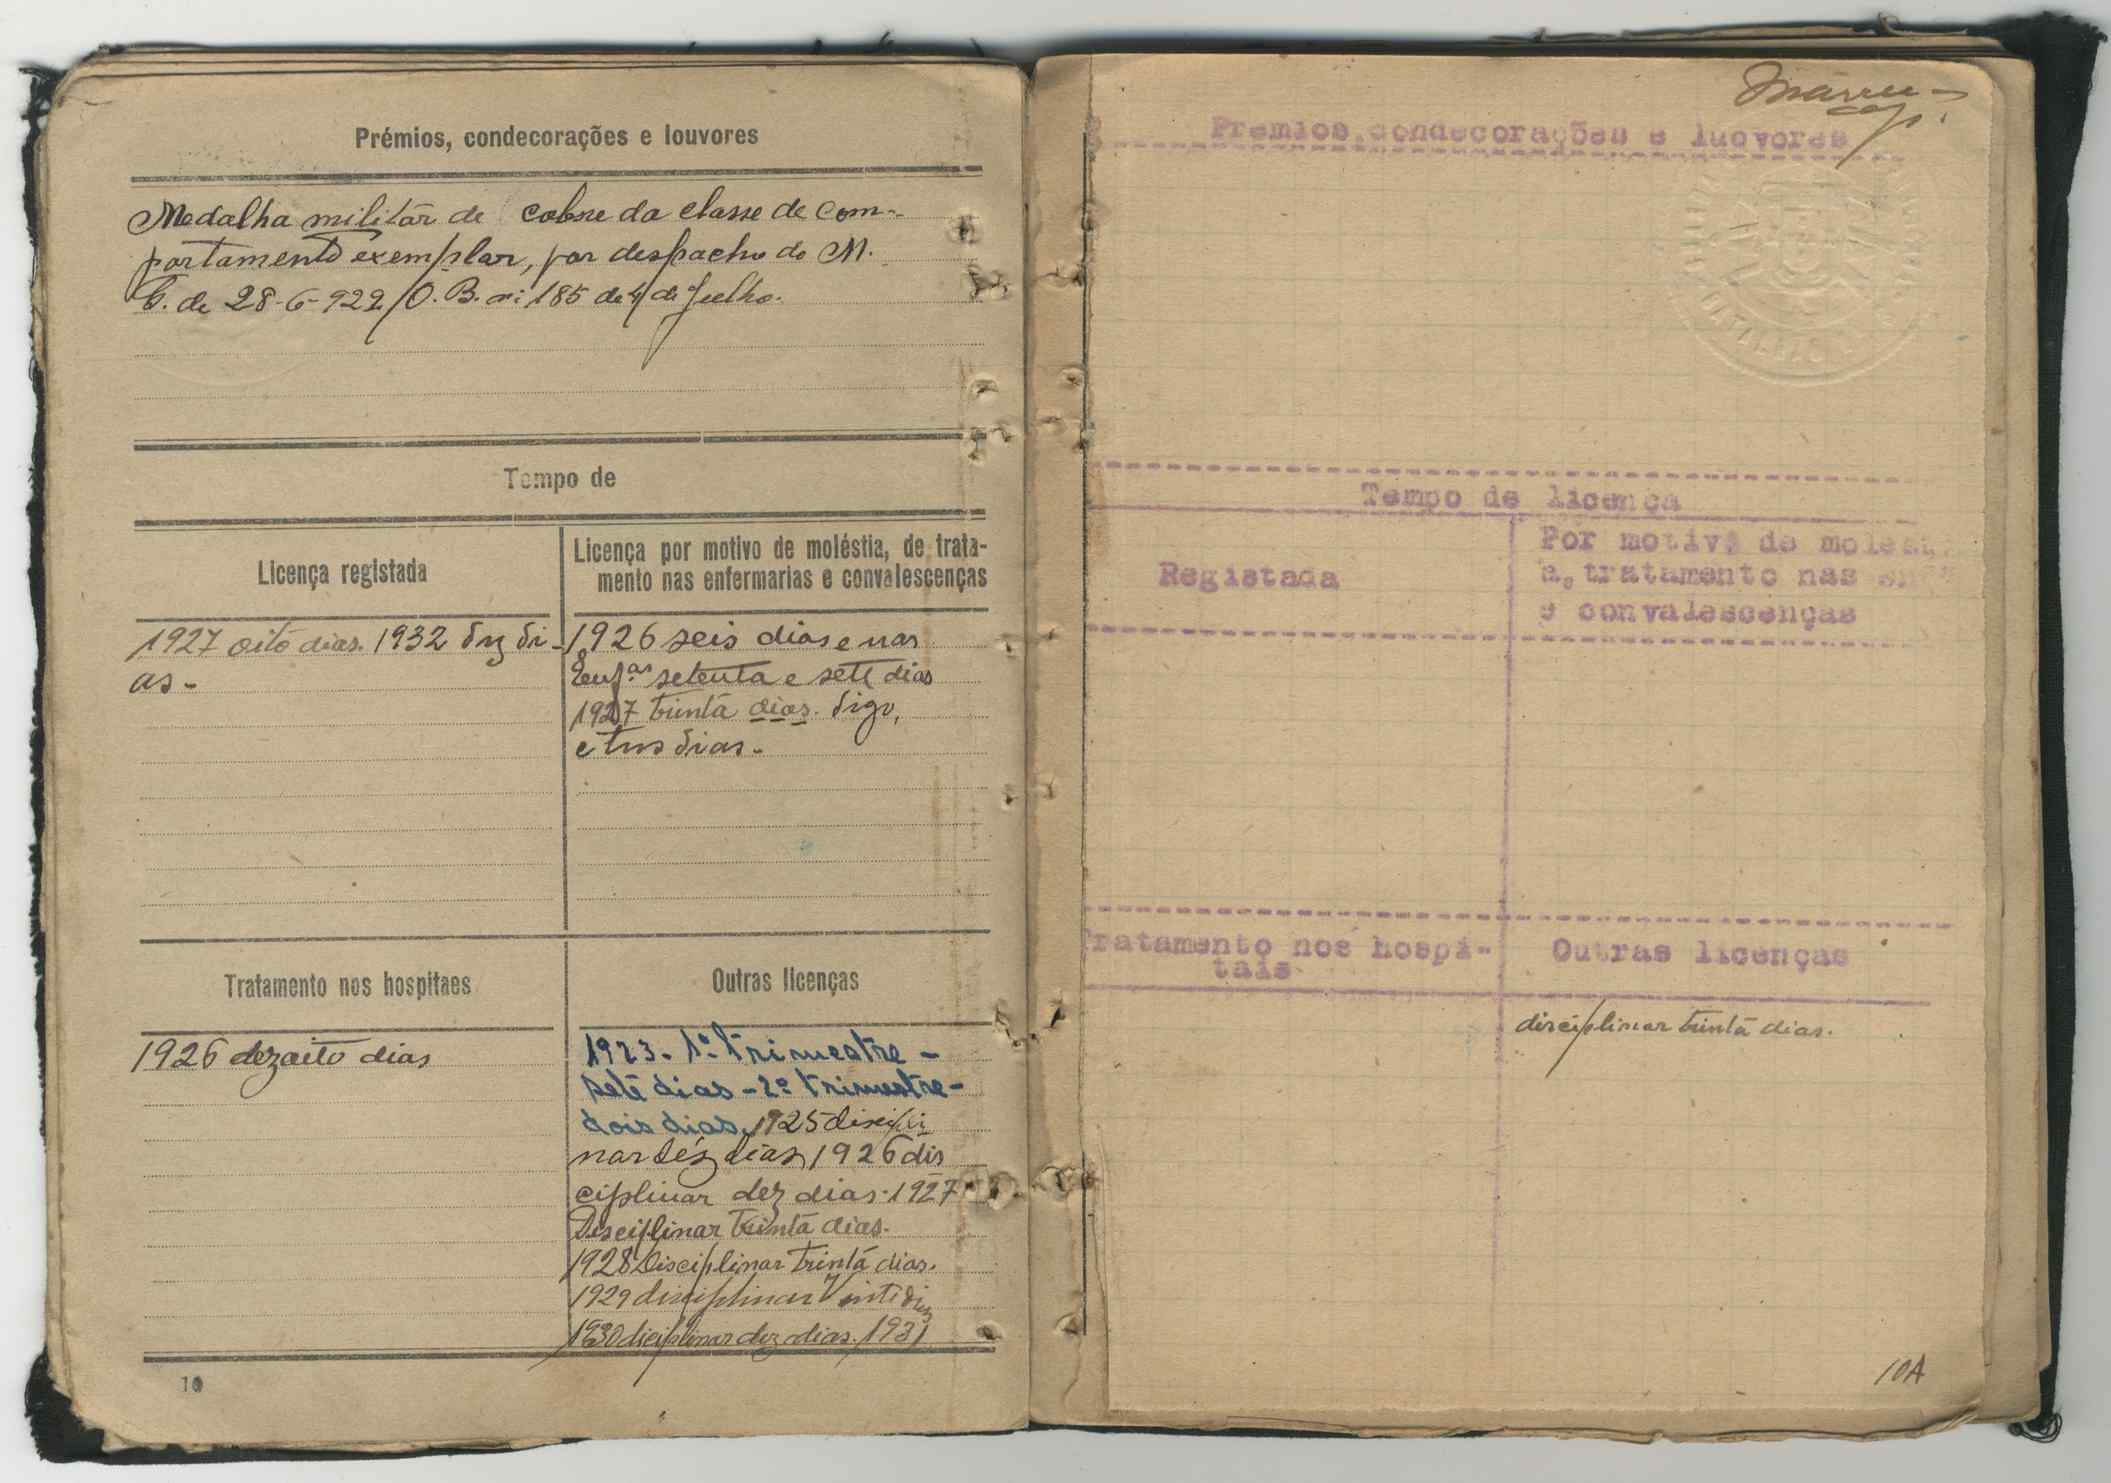 Prémios, condecorações e louvores
Medalha militar de cobre da classe de com-
portamento exemplar, por despacho do M.
G. de 28-6-922 O. B. nº 185 de 4 de Julho.
Tempo de
Licença registada
1927 oito dias. 1932 dez di-
as-
Licença por motivo de moléstia, de trata-
mento nas enfermarias e convalescenças
1926 seis dias e nas
Enf.as setenta e sete dias
1927 trinta dias. digo,
e tres dias-
Tratamento nos hospitaes
1926 dezoito dias
Outras licenças
1923- 1º trimestre -
sete dias - 2º trimestre -
dois dias. 1925 discipli
nar déz dias 1926 dis
ciplinar dez dias. 1927
Disciplinar trinta dias.
1928 Disciplinar trinta dias.
1929 disciplinar vinte dias
1930 diciplinar dez dias. 1931
10
Premios, condecorações e luovores
Tempo de licença
Registada
Por motivo de molest
a, tratamento nas enf
e convalescenças
Tratamento nos hospi-
tais
Outras licenças
disciplinar trinta dias.
10A
BATALHÃO